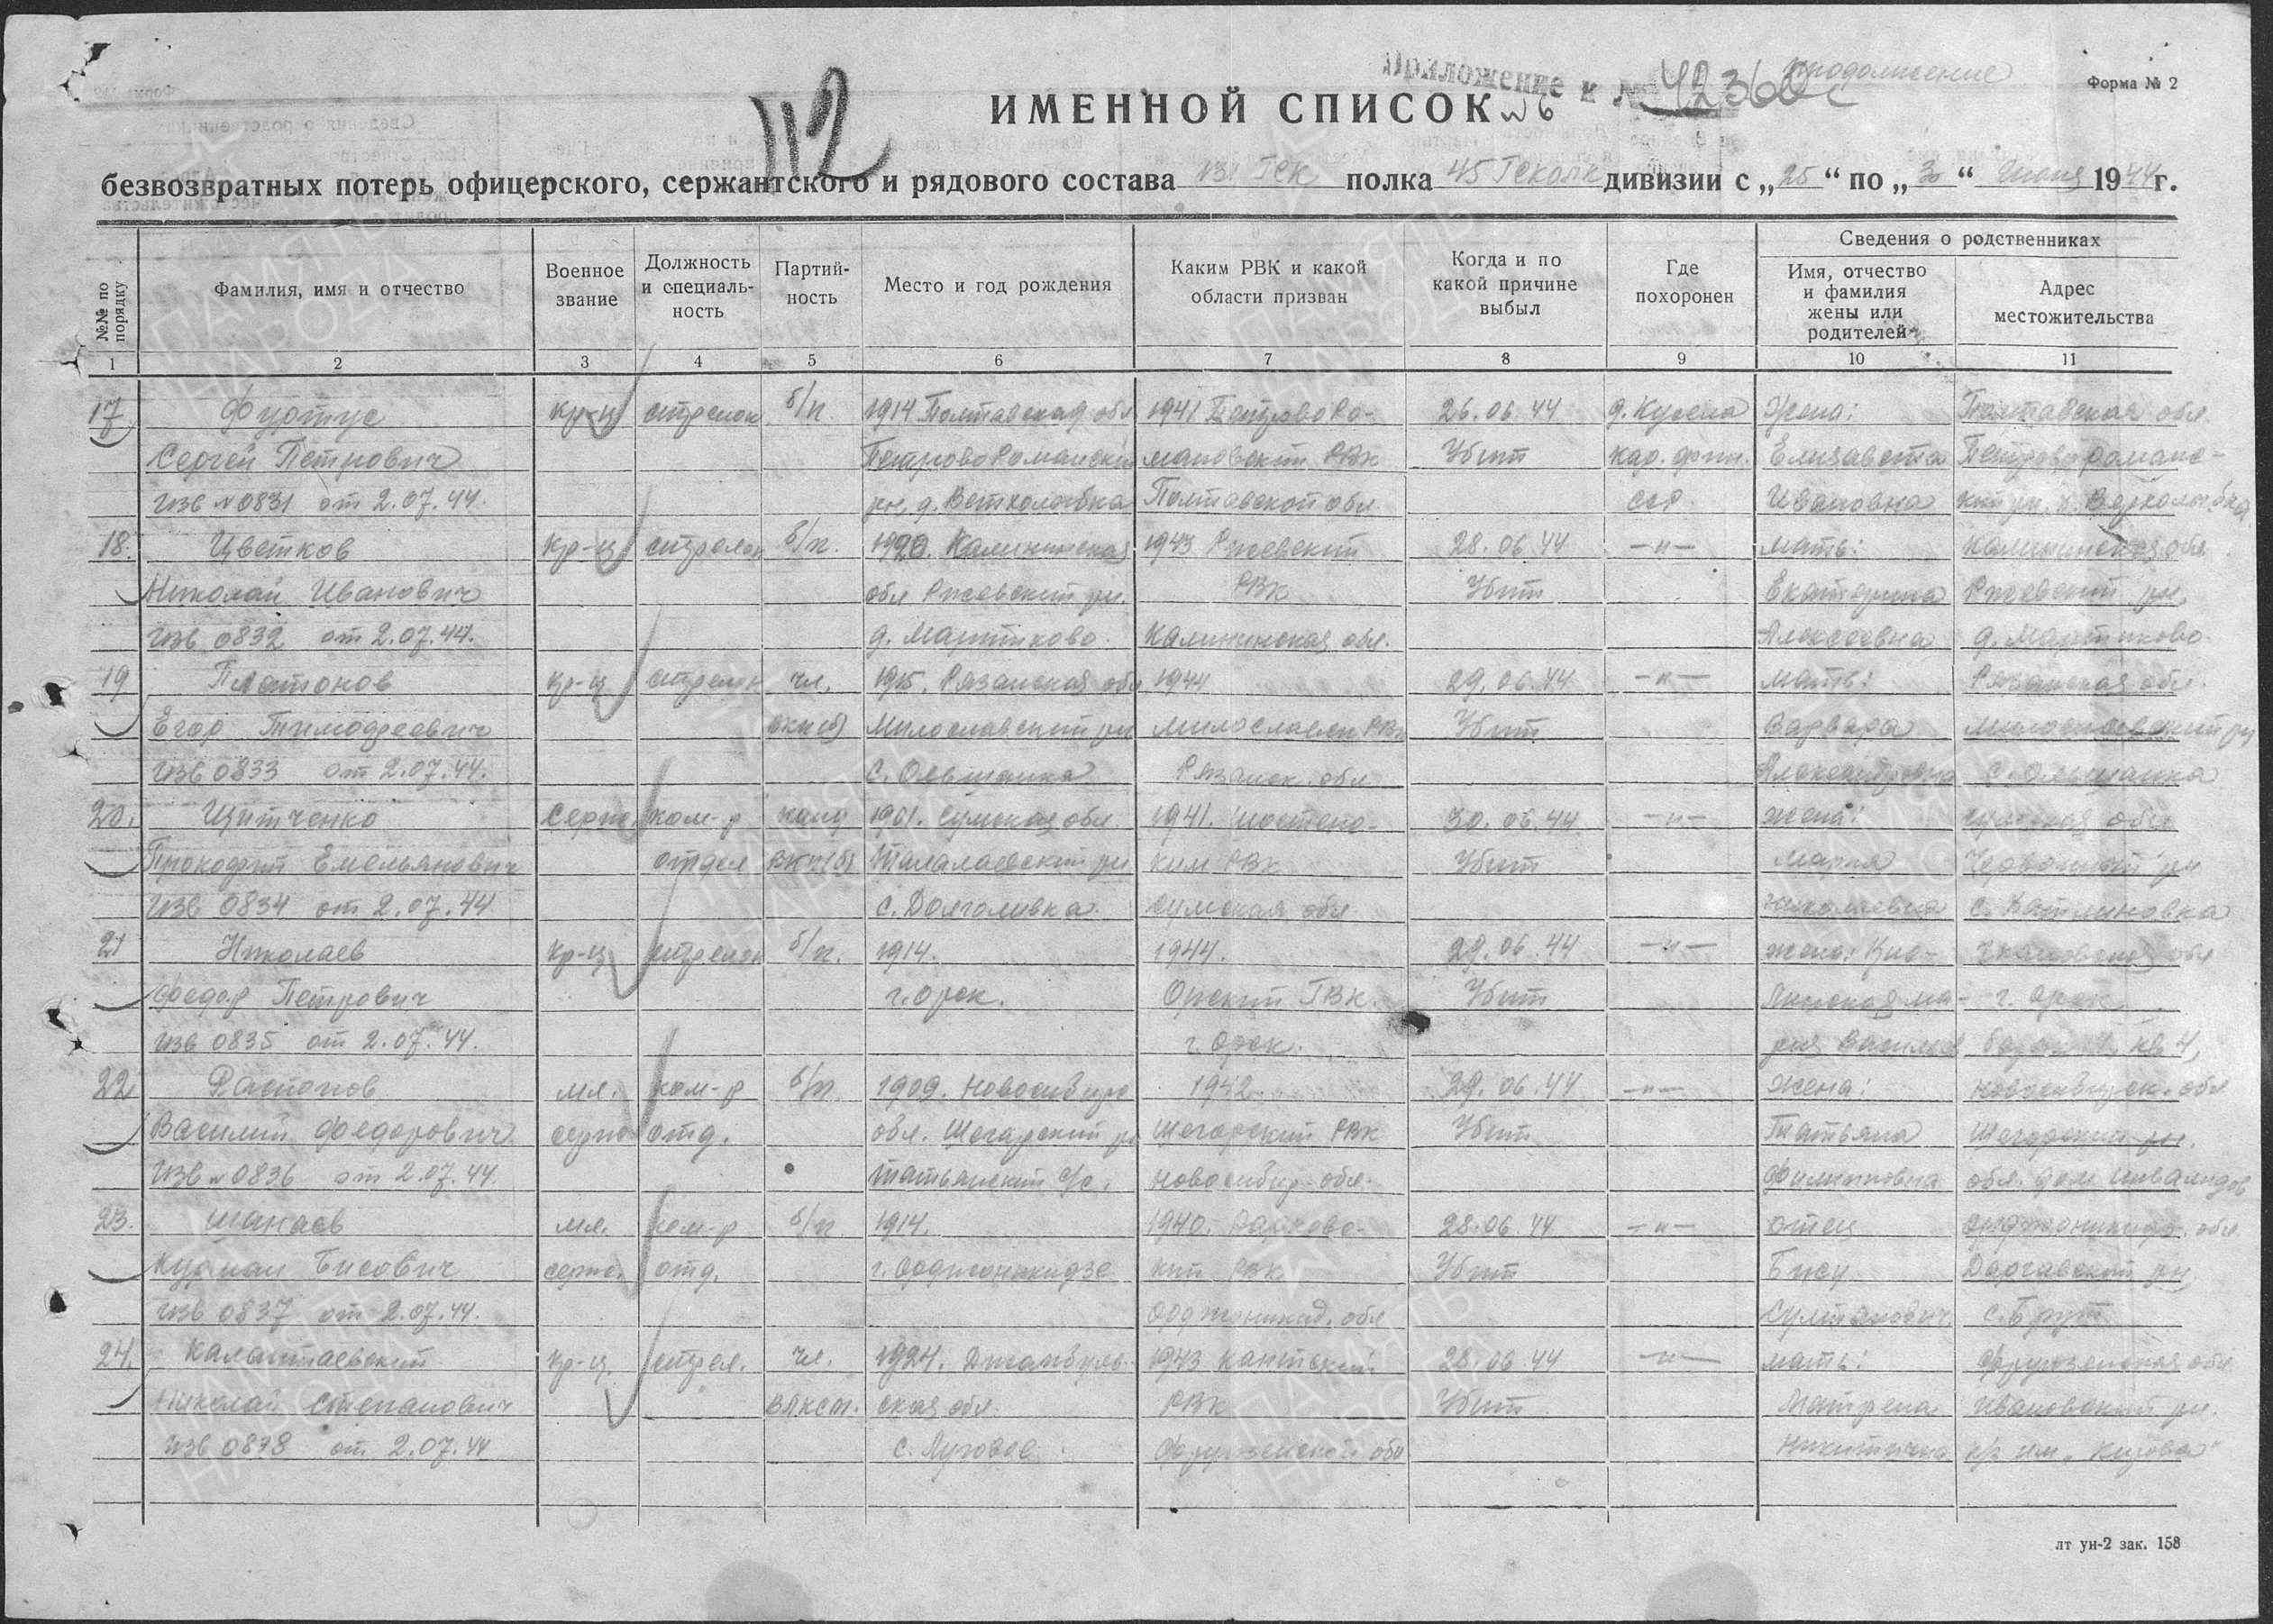 Приложение к № 42360с продолжение
Форма № 2
112
ИМЕННОЙ СПИСОК № 6
безвозвратных потерь офицерского, сержантского и рядового состава 131 Гск полка 45 Гск дивизии с „25“ по „30“ июня 1944 г.
Сведения о родственниках
№№ по порядку
Фамилия, имя и отчество
Военное звание
Должность и специаль-ность
Партий-ность
Место и год рождения
Каким РВК и какой области призван
Когда и по какой причине выбыл
Где похоронен
Имя, отчество и фамилия жены или родителей
Адрес местожительства
1 2 3 4 5 6 7 8 9 10 11
17 Фуртус кр-ц стрелок б/п. 1914 Полтавская обл 1941 Петрово Ро- 26.06.44 жена: Полтавская обл.
Сергей Петрович Петрово Романский мановский РВК Убит кар. фин. Елизавета Петрово романс-
изв № 0831 от 2.07.44. рн, д. Полтавской обл ССР. Ивановна
18. Цветков кр-ц стрелок б/п. Калининская 1943 Ржевский 28.06.44 —"— мать: Калининская обл.
Николай Иванович обл Ржевский рн. РВК Убит Екатерина Ржевский рн,
изв 0832 от 2.07.44. Калининская обл. Алексеевна
19 Платонов кр-ц стрелок чл. 1915. Рязанская обл 1944 29.06.44 —"— мать: Рязанская обл.
Егор Тимофеевич ВКП(б) Милославский рн Милославск РВК Убит Варвара Милославский рн
изв 0833 от 2.07.44. с. Ольшанка Рязанск. обл Александровна с. Ольшанка
20. Цитченко серж ком-р канд 1901. Сумская обл. 1941. 30.06.44 —"— жена: Сумская обл
Прокофий Емельянович отдел ВКП(б) Талалаевский рн ким РВК Убит Мария рн
изв 0834 от 2.07.44 с. Сумская обл Николаевна
21 Николаев кр-ц стрелок б/п. 1914. 1944. 29.06.44 —"— жена: Чкаловская обл
Федор Петрович г. Орск. Орский ГВК. Убит г. Орск
изв 0835 от 2.07.44. г. Орск. кв 4,
22 Распопов мл. ком-р б/п. 1909. Новосибирс 1942 29.06.44 —"— жена: Новосибирск. обл
Василий Федорович серж отд. обл. Шегарский рн Шегарский РВК Убит Татьяна Шегарский рн.
изв № 0836 от 2.07.44. с/с. Новосибир. обл. Филипповна обл. дом инвалидов
23. Шанаев мл. ком-р б/п. 1914. 1940. 28.06.44 —"— отец Орджоникидз. обл
Бисович серж. отд. г. Орджоникидзе кий РВК Убит Бису Даргавский рн
изв 0837 от 2.07.44. Орджоникид. обл Султанович с. Брут
24. Калантаевский кр-ц стрел. чл. 1924. Джамбуль- 1943 Кантский 28.06.44 —"— мать: Фрунзенская обл
Николай Степанович ВЛКСМ. ская обл. РВК Убит Матрена Ивановский рн.
изв 0838 от 2.07.44 с. Луговое Фрунзенской обл Никитична им. „Кирова“
лт ун-2 зак. 158